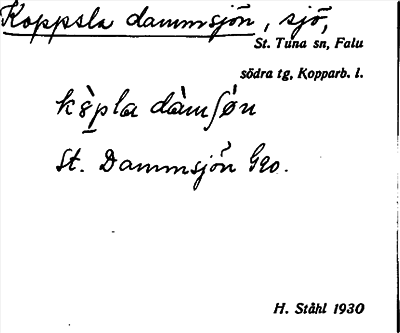 Koppsla dammsjön, sjö,
St. Tuna sn, Falu
södra tg, Kopparb. l.
St. Dammsjön Geo.
H. Ståhl 1930